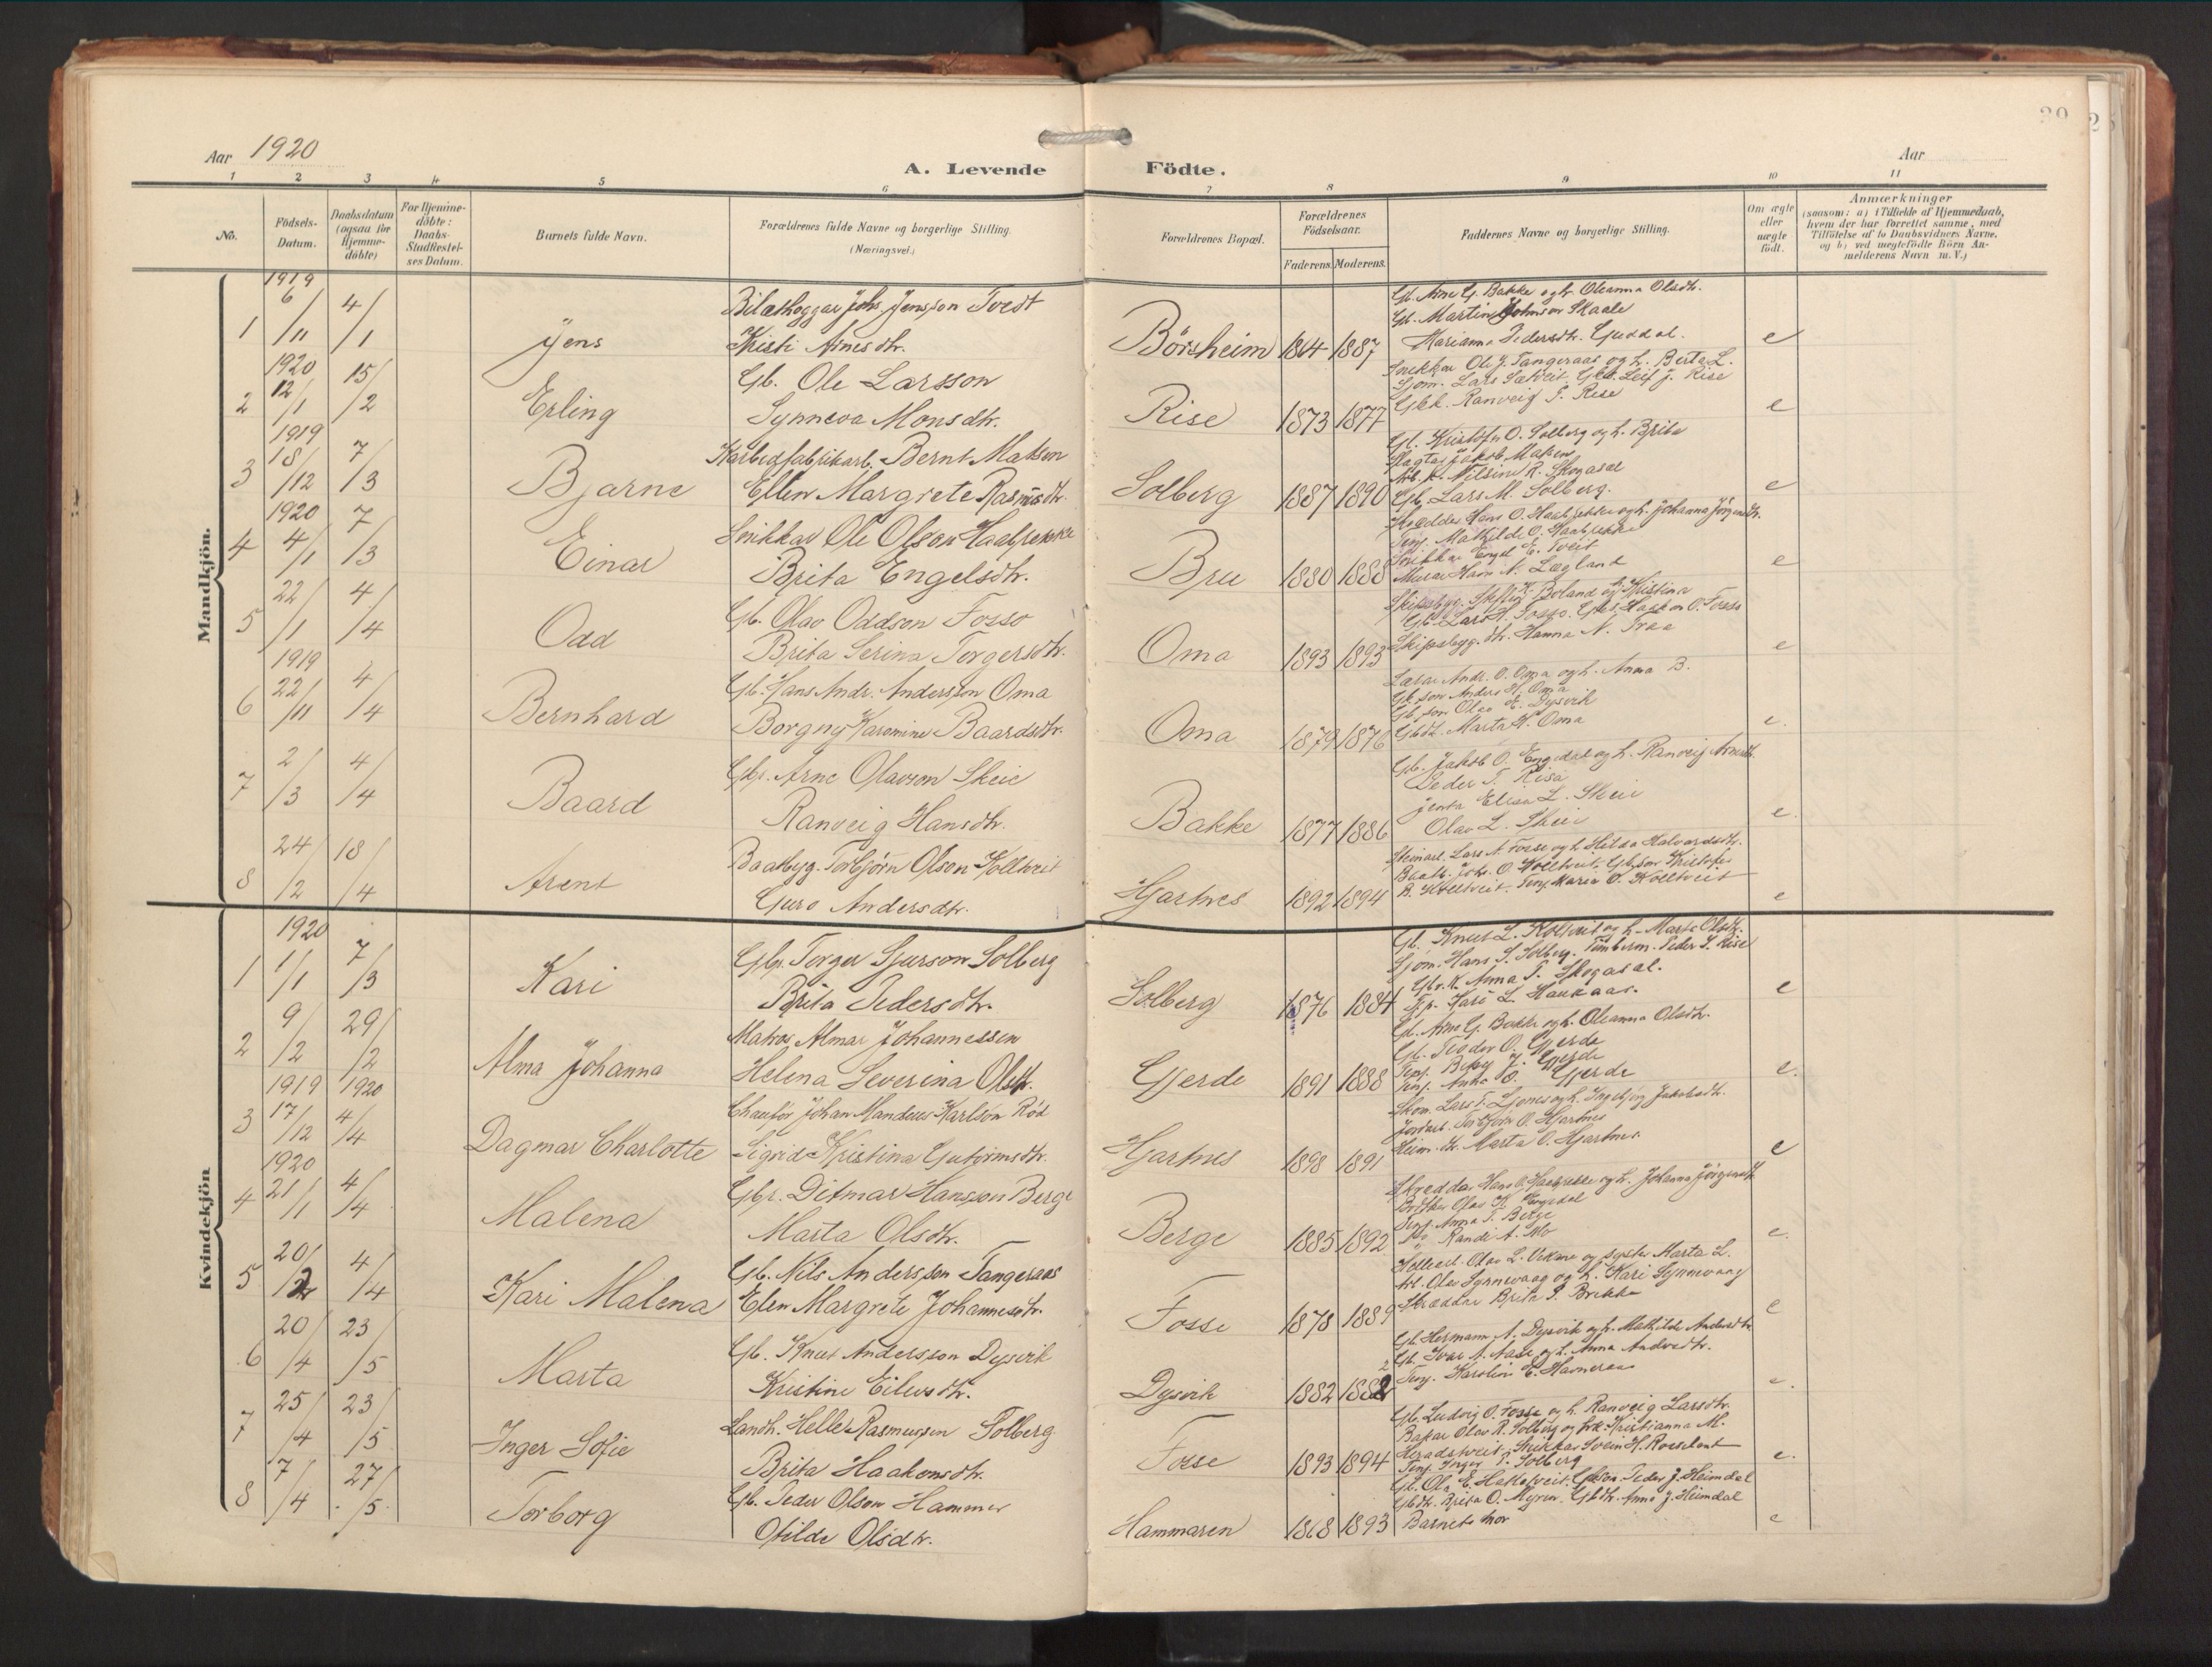 Aar 1920
A. Levende Födte.
Aar
1 2 3 4 5 6 7 8 9 10 11
No.
Födsels-Datum.
Daabsdatum (ogsaa for Hjemme-döbte)
For Hjemme-döbte: Daabs-Stadfæstel-ses Datum.
Barnets fulde Navn.
Forældrenes fulde Navne og borgerlige Stilling. (Næringsvei.)
Forældrenes Bopæl.
Forældrenes Födselsaar.
Faderens. Moderens.
Faddernes Navne og borgerlige Stilling.
Om ægte eller uægte födt.
Anmærkninger
(saasom: a) i Tilfælde af Hjemmedaab, hvem der har forrettet samme, med Tilföielse af to Daabsvidners Navne. og b) ved uægtefödte Börn An-melderens Navn m. V.)
Mandkjön.
1919
1 6/11 4/1 Jens
Johs. Jensson Tvedt
Kristi Arnesdtr.
Børsheim 1864 1887
Gb. Arne G. Bakke og h. Oleanna Olsdtr.
Gb. Martin Johnson Skaale
Marianna Pedersdtr. Guddal.
e
1920
2 12/1 15/2 Erling
Gb. Ole Larsson
Synneva Monsdtr.
Rise 1873 1877
Snekkar Ole J. Tangeraas og h. Berta L.
Leif J. Rise
Ranveig P. Rise
e
1919
3 18/12 7/3 Bjarne
Karbidfabrikarb. Bernt Matson
Ellen Margrete Rasmusdtr.
Solberg 1887 1890
Gb. Kristofer O. Solberg og h. Brita
Jakob Matson
Nilsine R. Skogasæl
Gb. Lars M. Solberg.
e
1920
4 4/1 7/3 Einar
Snikkar Ole Olson Haabrekke
Brita Engelsdtr.
Bru 1880 1888
Skrædder Hans O. Haabrekke og h. Johanna Jörgensdtr.
Tenj. Mathilde O. Haabrekke
Snikkar Engel E. Tveit
Murar Hans N. Lægland
e
5 22/1 4/4 Odd
Gb. Olav Oddson Fosso
Brita Serina Torgersdtr.
Oma 1893 1893
Skipsbyg. Boland og Kristina
Gb. Lars H. Fosso. Haakon O. Fosso
Skipsbyg. dtr. Hanna N. Træa
e
1919
6 22/11 4/4 Bernhard
Gb. Hans Andr. Andersson Oma
Borgny Karomine Baardsdtr.
Oma 1879 1876
Lærar Andr. O. Oma og h. Anna B.
Gb. son Anders H. Oma
Gb. son Olav E. Dysvik
Gbdt. Marta H. Oma
e.
7 2/3 4/4 Baard
Gbr. Arne Olavson Skeie
Ranveig Hansdtr.
Bakke 1877 1886
Gb. Jakob O. Engedal og h. Ranveig Arnesdtr.
Peder T. Risa
jenta Elisa L. Skeie
Olav L. Skeie
e.
8 24/2 18/4 Arent
Baatbyg. Torbjørn Olson Kolltveit
Guro Andersdtr.
Hjartnes 1892 1894
Lars A. Fosse og h. Hilda Halvardsdtr.
Baatb. Johs. O. Kolltveit. Gb.son Kristofer
R. Kolltveit. Tenj. Maria O. Kolltveit
e
Kvindekjön
1920
1 1/1 7/3 Kari
Gbr. Torger Sjurson Solberg
Brita Pedersdtr.
Solberg 1876 1884
Gb. Knut L. Kolltveit og h. Marta Olsdtr.
Sjöm. Hans S. Solberg. Tömberm. Peder J. Rise
Anna P. Skogasæl.
Kari L. Haukaas.
e
2 9/2 29/2 Alma Johanna
Matros Almar Johannessen
Helena Severina Olsdtr.
Gjerde 1891 1888
Gb. Arne G. Bakke og h. Oleanna Olsdtr.
Gb. Teodor O. Gjerde
Tenj. Betsy J. Gjerde
Tenj. Anna O. Gjerde
e.
1919 1920
3 17/12 4/4 Dagmar Charlotte
Chaufør Johan Mandeus Karlson Röd
Sigrid Kristina Gutormsdtr.
Hjartnes 1898 1891
Skom. Lars T. Ljones og h. Ingebjørg Jakobsdtr.
Torbjörn O. Hjartnes
Heim. dt. Marta O. Hjartnes
e
1920
4 21/1 4/4 Malena
Gbr. Ditmar Hansson Berge
Marta Olsdtr.
Berge 1885 1892
Skredder Hans O. Haabrekke og h. Johanna Jørgensdtr.
Olav K. Engedal
Tenj. Anna T. Berge
Randi A. Mo
e.
5 20/2 4/4 Kari Malena
Gb. Nils Andersson Tangeraas
Elen Margrete Johannesdtr.
Fosse 1878 1889
Olav L. Vikane og syster Marta L.
Arb. Olav Synnevaag og h. Kari Synnevaag
Skræddar Brita P. Brekke
e
6 20/4 23/5 Marta
Gb. Knut Andersson Dysvik
Kristine Eilevsdtr.
Dysvik 1882 1882
2
Gb. Hermann A. Dysvik og h. Mathilde Andersdtr.
Gb. Ivar A. Aase og h. Anna Andersdtr.
Tenj. Karolin E. Havneraas
e.
7 25/4 23/5 Inger Sofie
Landh. Helle Rasmussen Solberg
Brita Haakonsdtr.
Fosse 1893 1894
Gb. Ludvig O. Fosse og h. Ranveig Larsdtr.
Bakar Olav R. Solberg og frk. Kristianna M.
Heradstveit. Snikkar Svein H.
Tenj. Inger T. Solberg
e.
8 7/4 27/5 Torborg
Gb. Peder Olson Hammer
Otilde Olsdtr.
Hammaren 1868 1893
Gb. Ola E. Hatletveit. Gb.son Peder J. Heimdal
Gbdtr. Brita O. Myren. Gbdtr. Anna J. Heimdal
Barnets mor
e